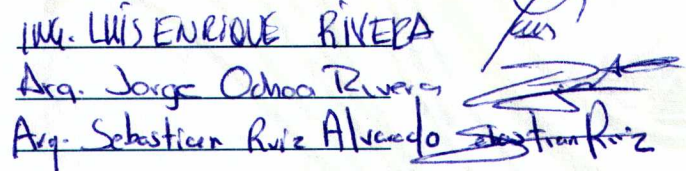 ING. LUIS ENRIQUE RIVERA Luis
Arq. Jorge Ochoa Rivera
Arq. Sebastian Ruiz Alvarado Sebastian Ruiz